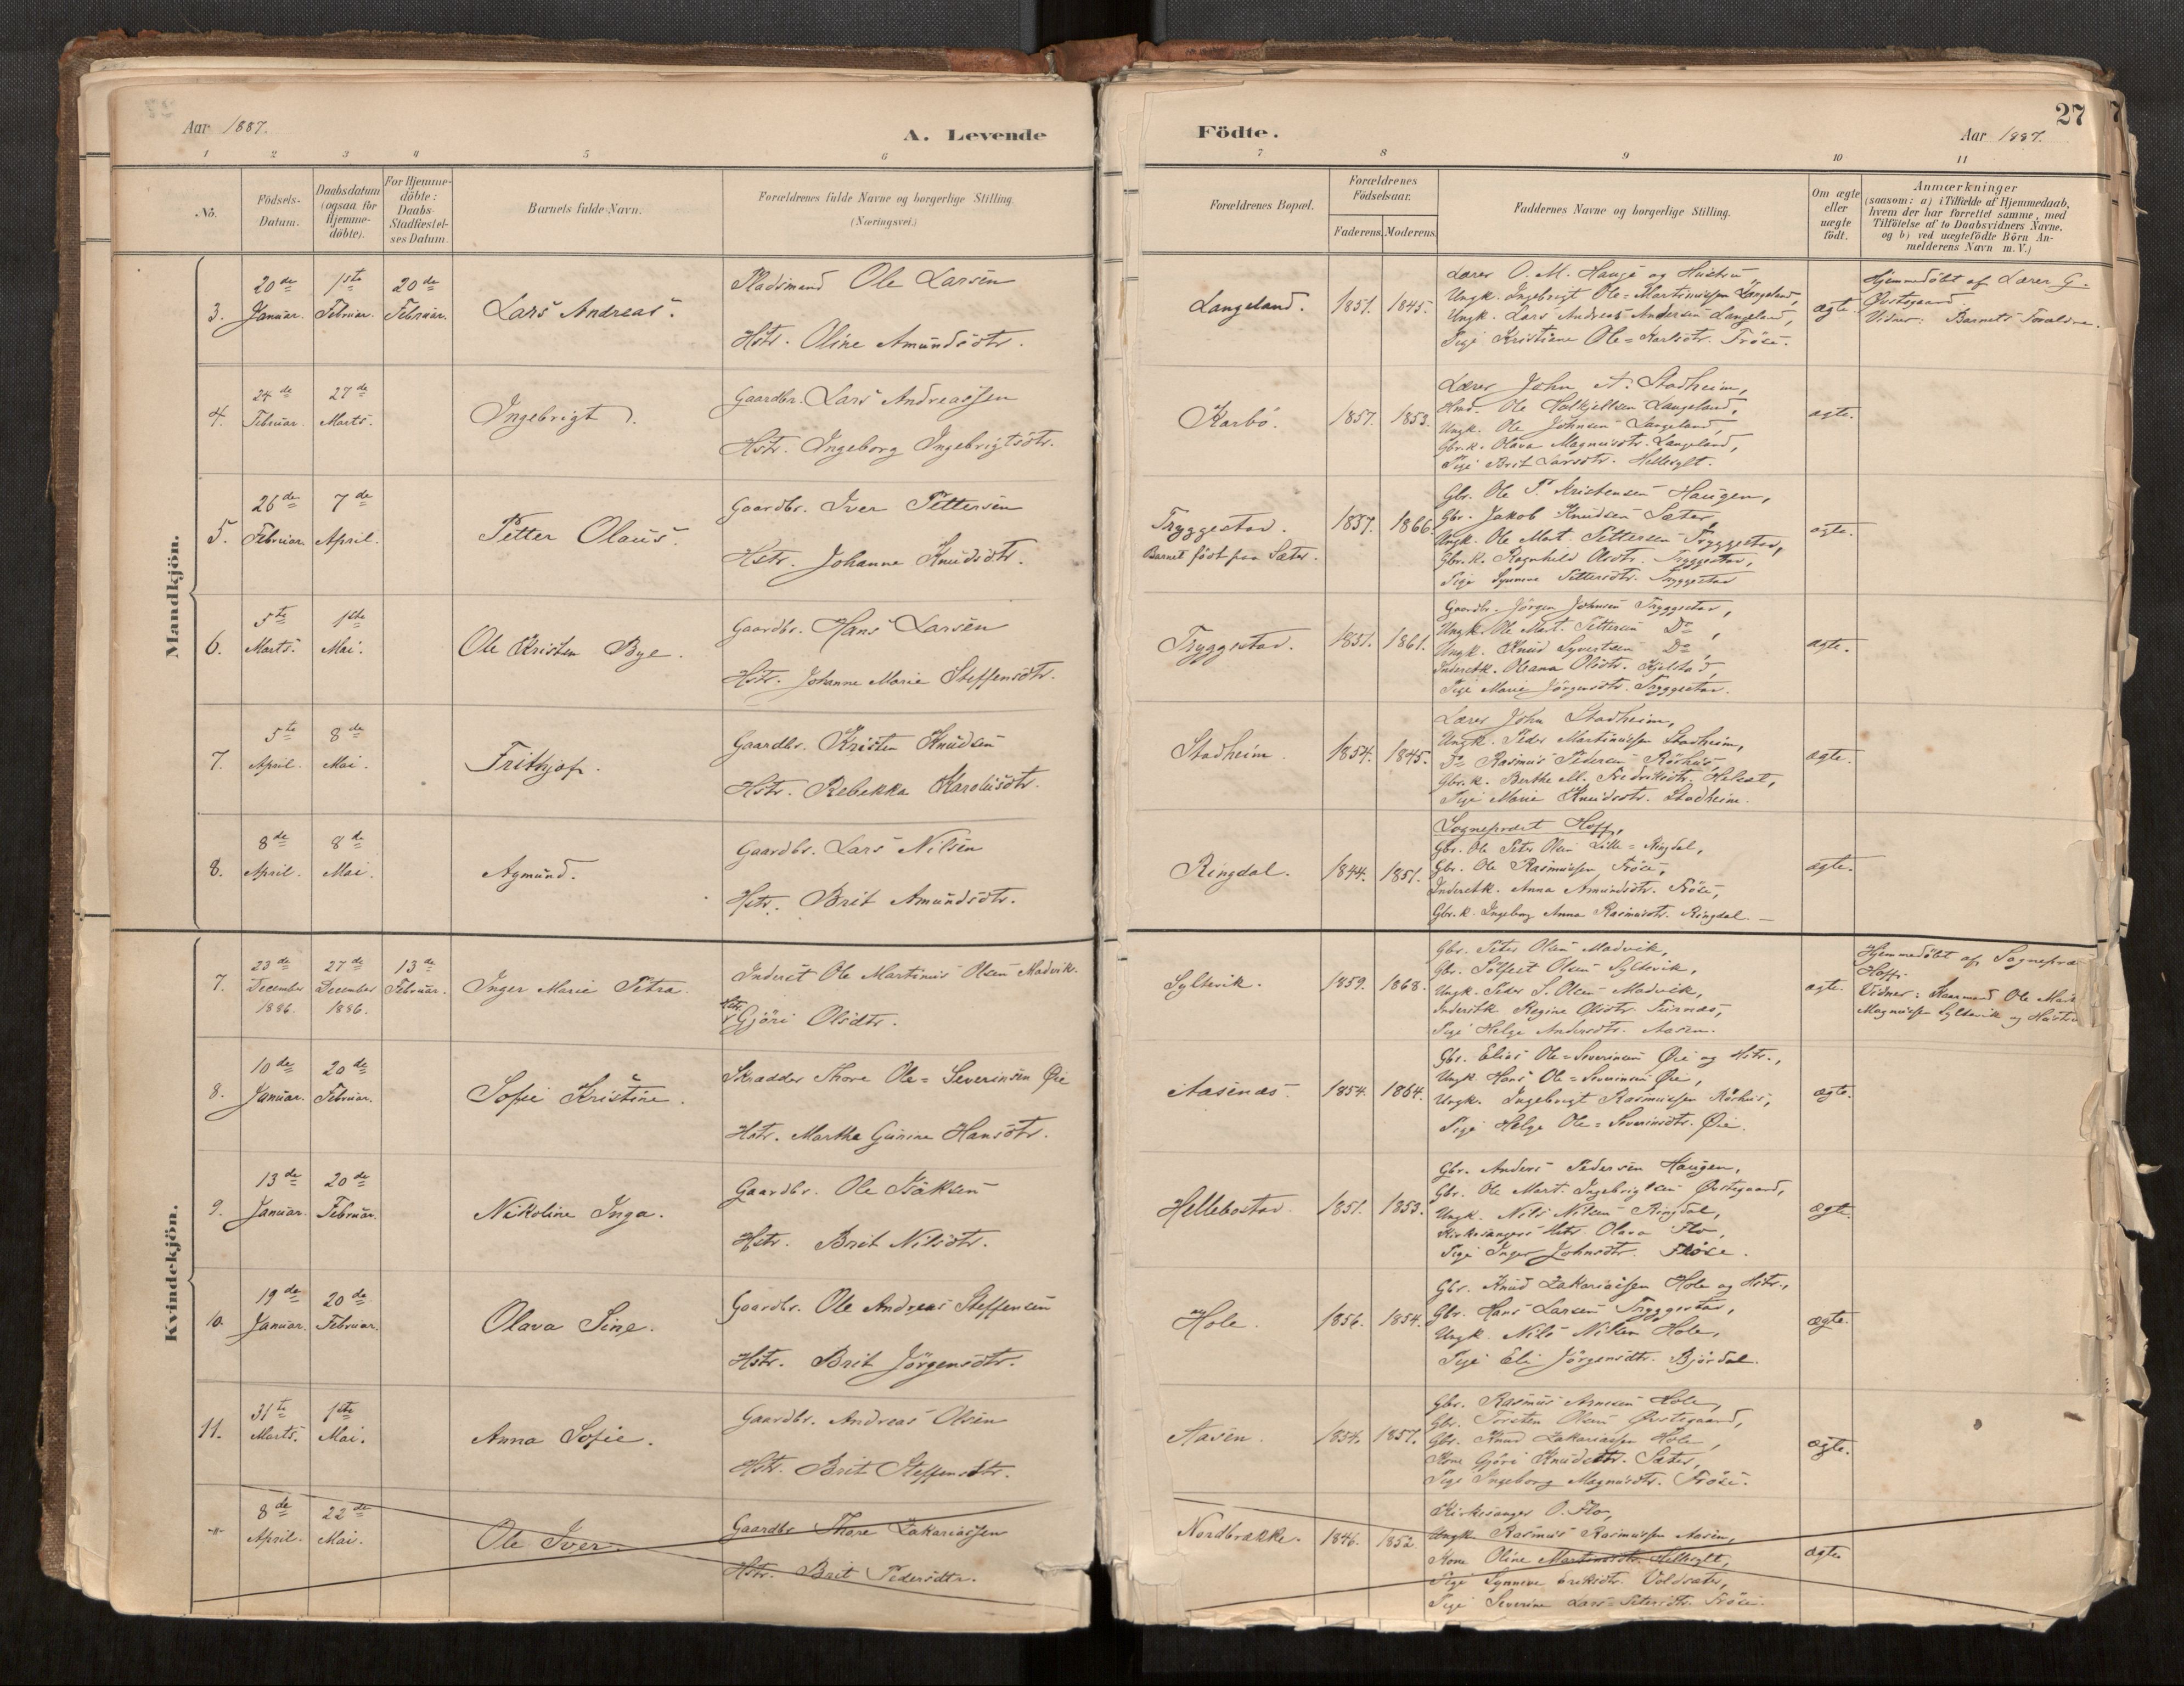 27
Aar 1887.
A. Levende Födte.
Aar 1887.
1 2 3 4 5 6 7 8 9 10 11
No.
Födsels-Datum.
Daabsdatum (ogsaa for Hjemme-döbte).
For Hjemme-döbte: Daabs-Stadfæstel-ses Datum.
Barnets fulde Navn.
Forældrenes fulde Navne og borgerlige Stilling.
(Næringsvei.)
Forældrenes Bopæl.
Forældrenes Födselsaar.
Faderens. Moderens.
Faddernes Navne og borgerlige Stilling.
Om ægte eller uægte födt.
Anmærkninger
(saasom: a) i Tilfælde af Hjemmedaab,
hvem der har forrettet samme, med
Tilföielse af to Daabsvidners Navne,
og b) ved uægtefödte Börn An-
melderens Navn m. V.)
Mandkjön.
3. 20de Januar. 1ste Februar. 20de Februar. Lars Andreas.
Pladsmand Ole Larsen
Hstr. Oline Amundsdtr.
Langeland. 1851. 1845.
Lærer O. M. Hauge og Hustru,
Ungk. Ingebrigt Ole-Martinussen Langeland,
Ungk. Lars Andreas Andersen Langeland,
Pige Kristiane Ole-Karlsdtr. Fröse.
ægte.
Hjemmedöbt af Lærer G.
Øvstegaard.
Vidner: Barnets Forældre.
4. 24de Februar. 27de Marts. Ingebrigt.
Gaardbr. Lars Andreassen
Hstr. Ingeborg Ingebrigtsdtr.
Karbö. 1857. 1853.
Lærer John A. Stadheim,
Ole Langeland,
Ungk. Ole Johnsen Langeland,
Gbr.k. Olava Magnusdtr. Langeland,
Pige Brit Larsdtr. Hellesylt.
ægte.
5. 26de Februar. 7de April. Petter Olaus.
Gaardbr. Iver Pettersen
Hstr. Johanne Knudsdtr.
Tryggestad. 1857. 1866.
Barnet födt paa Sæter.
Gbr. Ole P. Kristensen Haugen,
Gbr. Jakob Knudsen Sæter
Ungk. Ole Mart. Pettersen Tryggestad,
Gbr.k. Ragnhild Olsdtr. Tryggestad,
Pige Synneve Pettersdtr. Tryggestad
ægte.
6. 5te Marts. 1ste Mai. Ole Kristen Bye.
Gaardbr. Hans Larsen
Hstr. Johanne Marie Steffensdtr.
Tryggestad. 1851. 1861.
Gaardbr. Jörgen Johnsen Tryggestad,
Ungk. Ole Mart. Pettersen Do,
Ungk. Knud Syvertsen Do
Inderstk. Oleana Olsdtr. Kjelstad,
Pige Marie Jörgensdtr. Tryggestad.
ægte.
7. 5te April. 8de Mai. Frithjof.
Gaardbr. Kristen Knudsen
Hstr. Rebekka Karolusdtr.
Stadheim 1854. 1845.
Lærer John Stadheim,
Ungk. Peder Martinussen Stadheim,
Do Rasmus Pedersen Röshus,
Gbr.k. Berthe M. Fredriksdtr. Helset,
Pige Marie Knudsdtr. Stadheim.
ægte.
8. 8de April. 8de Mai. Agmund.
Gaardbr. Lars Nilsen
Hstr. Brit Amundsdtr.
Ringdal. 1844. 1851.
Sogneprest Hoff,
Gbr. Ole Peter Olsen Lille-Ringdal,
Gbr. Ole Rasmussen Fröse,
Inderstk. Anna Amundsdtr. Fröse,
Gbr.k. Ingeborg Anna Rasmusdtr. Ringdal.
ægte.
Kvindekjön.
7. 23de December 1886. 27de December 1886. 13de Februar. Inger Marie Petra.
Inderst Ole Martinus Olsen Madvik.
Hstr. Gjöri Olsdtr.
Syltevik. 1859. 1868.
Gbr. Peter Olsen Madvik,
Gbr. Sölfest Olsen Syltevik,
Ungk. Peder S. Olsen Madvik,
Inderstk. Regine Olsdtr. Furnæs,
Pige Helge Andersdtr. Aasen.
ægte.
Hjemmedöbt af Sognepræ
Hoff.
Vidner: Kaarmand Ole Mart
Magnussen Syltevik og Hustru
8. 10de Januar. 20de Februar. Sofie Kristine.
Skrædder Thore Ole-Severinsen Øie
Hstr. Marthe Gurine Hansdtr.
Aasenæs. 1854. 1864.
Gbr. Elias Ole-Severinsen Øie og Hstr.,
Ungk. Hans Ole-Severinsen Øie,
Ungk. Ingebrigt Rasmussen Röshus,
Pige Helge Ole-Severinsdtr. Øie.
ægte.
9. 13de Januar. 20de Februar. Nikoline Inga.
Gaardbr. Ole Isaksen
Hstr. Brit Nilsdtr.
Hellebostad. 1851. 1853.
Gbr. Anders Pedersen Haugen,
Gbr. Ole Mart. Ingebrigtsen Øvstegaard,
Ungk. Nils Nilsen Ringdal,
Kirkesangers Hstr. Olava Flo,
Pige Inger Johnsdtr. Fröse.
ægte.
10. 19de Januar. 20de Februar. Olava Sine.
Gaardbr. Ole Andreas Steffensen
Hstr. Brit Jörgensdtr.
Hole. 1856. 1854.
Gbr. Knud Zakariassen Hole og Hstr.,
Gbr. Hans Larsen Tryggestad,
Ungk. Nils Nilsen Hole,
Pige Eli Jörgensdtr. Björdal.
ægte.
11. 31te Marts. 1ste Mai. Anna Sofie.
Gaardbr. Andreas Olsen
Hstr. Brit Steffensdtr.
Aasen. 1854. 1857.
Gbr. Rasmus Arnesen Hole,
Gbr. Torsten Olsen Øvstegaard,
Gbr. Knud Zakariassen Hole,
Kone Gjöri Knudsdtr. Sæter,
Pige Ingeborg Magnusdtr. Fröse.
ægte.
-"- 8de April. 22de Mai. Ole Iver.
Gaardbr. Thore Zakariassen
Hstr. Brit Pedersdtr.
Nordbrække. 1846. 1852.
Kirkesanger O. Flo,
Ungk. Rasmus Rasmussen Aasen,
Kone Oline Martinusdtr. Hellesylt,
Pige Synneve Eriksdtr. Voldsæter,
Pige Severine Lars-Petersdtr. Fröse.
ægte